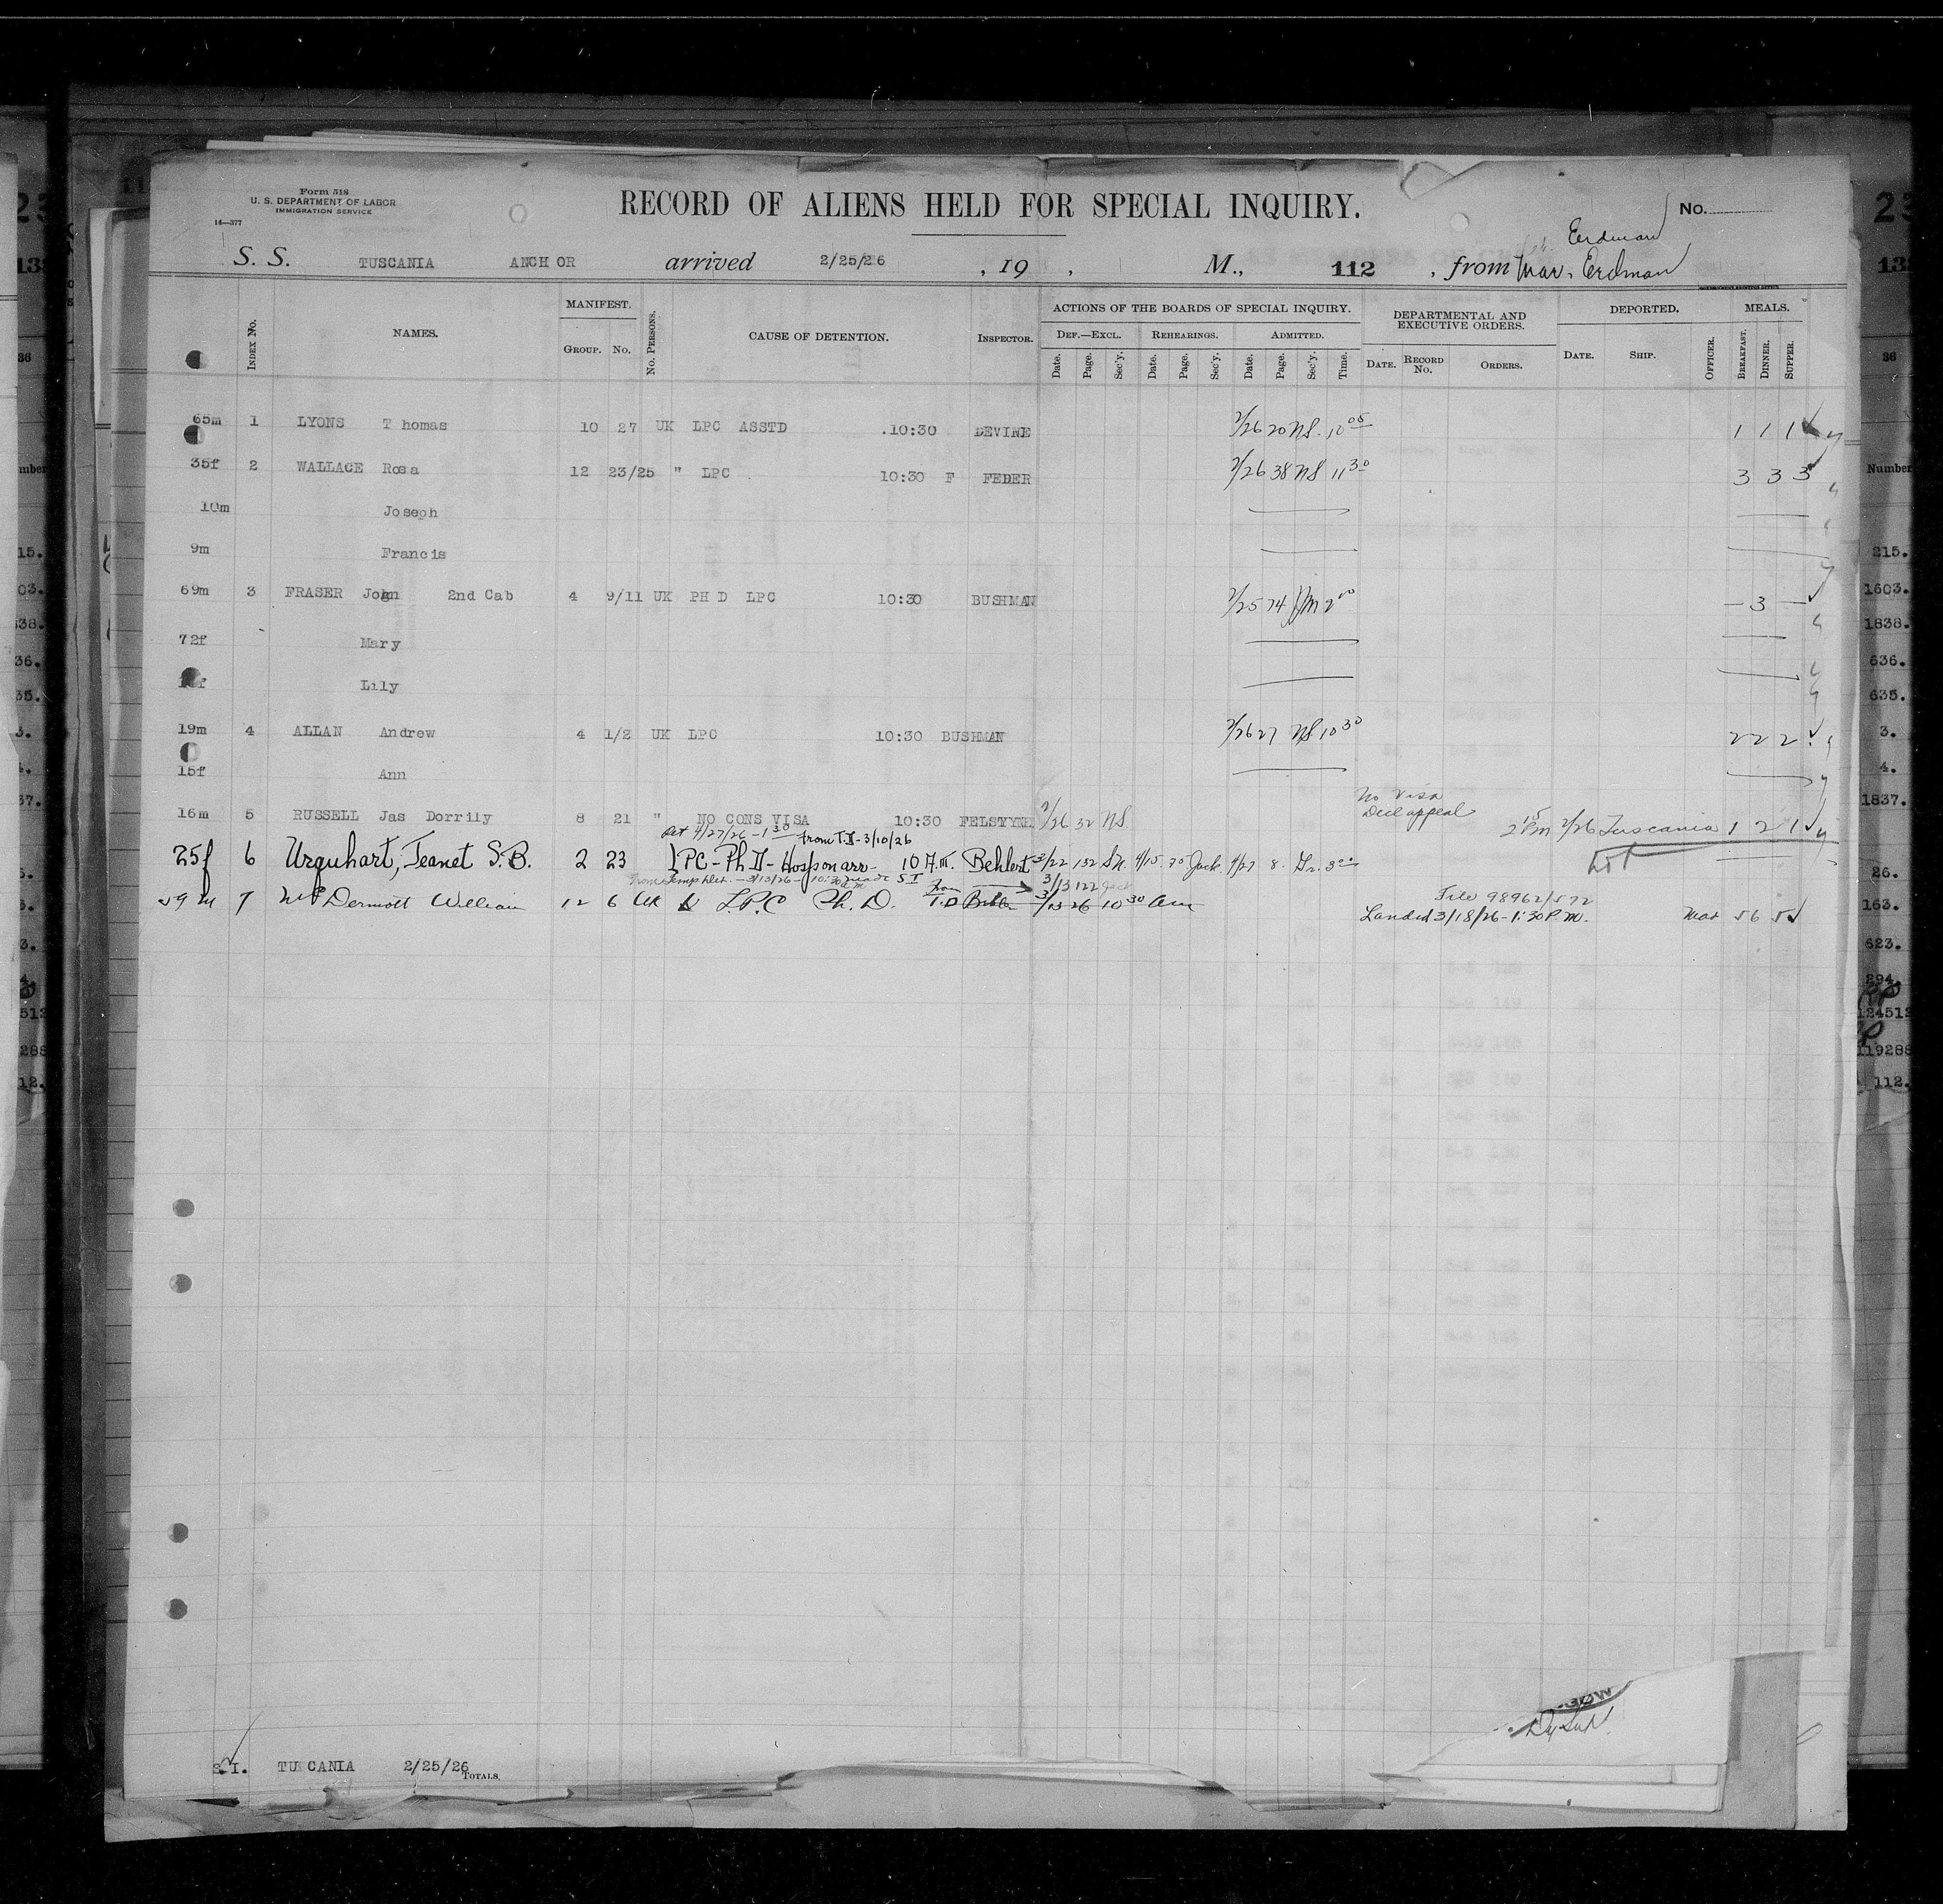 Form 518
U. S. DEPARTMENT OF LABOR
IMMIGRATION SERVICE
14—377
RECORD OF ALIENS HELD FOR SPECIAL INQUIRY.
No.
Erdman
S. S. TUSCANIA ANCHOR arrived 2/25/26, 19 , M., 112, from Erdman
INDEX No. NAMES. MANIFEST. GROUP. No. No. PERSONS. CAUSE OF DETENTION. INSPECTOR. ACTIONS OF THE BOARDS OF SPECIAL INQUIRY. DEPARTMENTAL AND EXECUTIVE ORDERS. DEPORTED. MEALS.
DEF.—EXCL. REHEARINGS. ADMITTED.
Date. Page. Sec'y. Date. Page. Sec'y. Date. Page. Sec'y. Time. DATE. RECORD No. ORDERS. DATE. SHIP. OFFICER. BREAKFAST. DINNER. SUPPER.
65m 1 LYONS Thomas 10 27 UK LPC ASSTD .10:30 DEVINE 2/26 20 NS. 10 05 1 1 1
35f 2 WALLACE Rosa 12 23/25 " LPC 10:30 F FEDER 2/26 38 NS 11 30 3 3 3
10m Joseph
9m Francis
69m 3 FRASER John 2nd Cab 4 9/11 UK PH D LPC 10:30 BUSHMAN 2/25 74 2 00 — 3 —
72f Mary
Lily
19m 4 ALLAN Andrew 4 1/2 UK LPC 10:30 BUSHMAN 2/26 27 NS 10 30 2 2 2
15f Ann
No Visa
16m 5 RUSSELL Jas Dorrily 8 21 " NO CONS VISA 10:30 FELSTYNE 2/26 32 NS. appeal 2 15 PM 2/26 Tuscania 1 2 1
4/27/26 - 1 30 from T.D - 3/10/26
25f 6 Urquhart, Jeanet S.B. 2 23 LPC - Ph D - Hosp on arr - 10 A.M. Behlert 3/22 132 4/15 Jack. 4/27 8 3 00
3/13/26 - 10:30 A M S I 3/13 122 Jack
59 M 7 McDermott William 12 6 UK L.P.C Ph. D. from T.D 3/13 26 10 30 am
File 98962/572
Landed 3/18/26 - 1:30 P.M. 5 6 5
S.I. TUSCANIA 2/25/26
TOTALS,